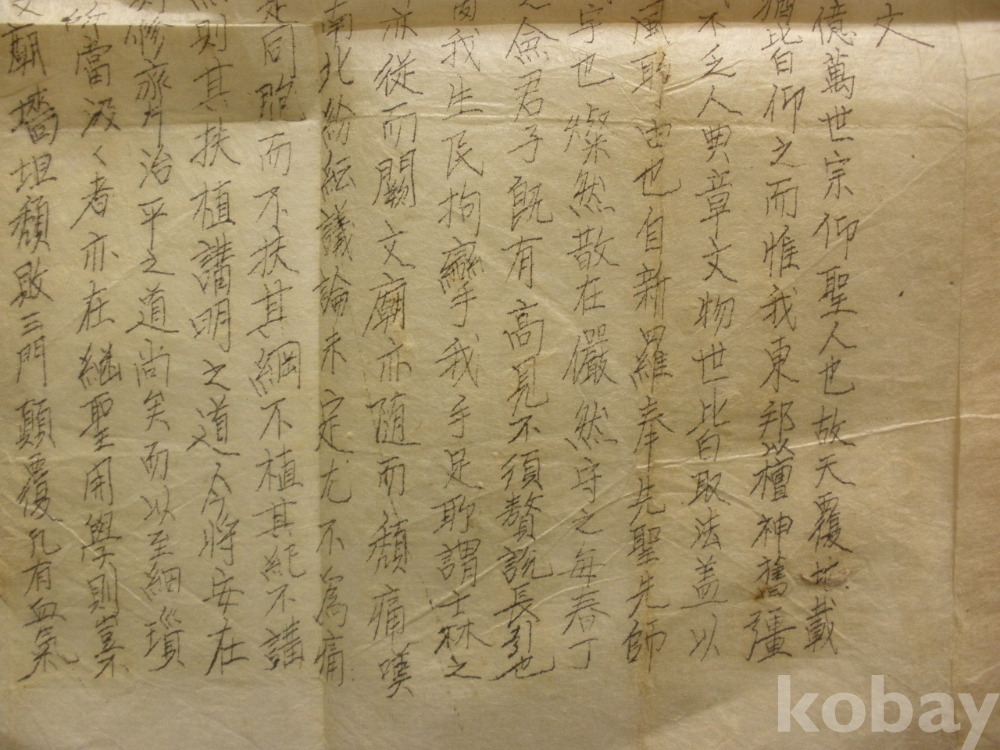 文
億萬世宗仰聖人也故天覆地載
皆自仰之而惟我東邦以檀神舊疆
不乏人典章文物世皆取法盖以
風耶由也自新羅奉先聖先師
宇也燦然散在儼然守之每春丁
僉君子旣有高見不須贅說長引也
我生民拘攣我手足耶謂士林之
亦從而闕文廟亦随而頹痛嘆
南北紛紜議論未定尤不爲痛
同胞而不扶其綱不植其紀不講
則其扶植講明之道今將安在
修齊治平之道尚矣而以至細瑣
當汲〱者亦在繼聖開學則棠
廟墻坦頹敗三門顛覆凡有血氣
kobay